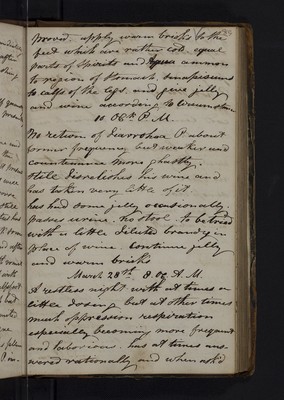 proved. apply warm bricks to the
feet which are rather cold. equal
parts of Spirits and Aqua ammon
to region of Stomach, sinapisms
to calfs of the legs. and give jelly
and wine according to Circumstan
10 O6th P.M.
No return of Diarrohea P. about
former frequency but weaker and
countenance more ghastly.
still disrelishes his wine and
has taken very little of it.
has had some jelly occasionally.
passes urine. no stool. to be tried
with a little diluted brandy in
place of wine. Continue jelly
and warm bricks
March 28th. 8.06 A.M.
A restless night with at times a
little dosing but at other times
much oppression respiration
especially becoming more frequent
and laborious. has at times ans-
wered rationally and when ask'd